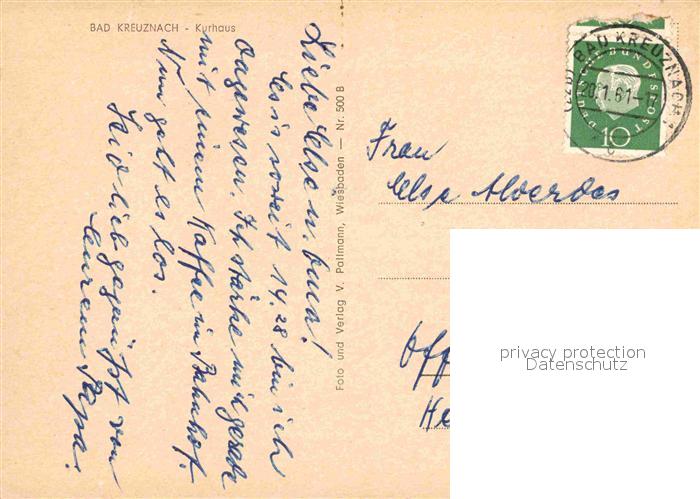 BAD KREUZNACH - Kurhaus
Liebe Else u. Enne!
Es is soweit 14.28 bin ich
dagewesen. Ich stärke mich gerade
mit einem Kaffee im Bahnhof.
Nun geht es los.
Seid lieb gegrüßt von
Eurem Papa.
Foto und Verlag V. Pallmann, Wiesbaden — Nr. 500 B
(22b) BAD KREUZNACH
20.1.61-17
c
DEUTSCHE BUNDESPOST
10
Frau
Else Alverdes
Off
He
privacy protection
Datenschutz